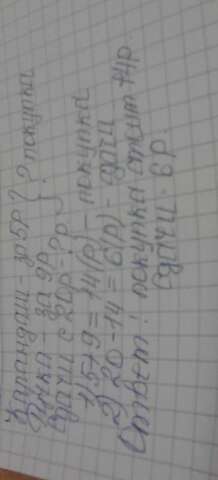 Карандаш - за 5р } ? покупка
Ручка - за 9р
Сдачи с 20р - ?р
1) 5+9=14(р) - покупка
2) 20-14=6(р) - сдачи
Ответ: покупка стоит 14р.
сдачи 6 р.